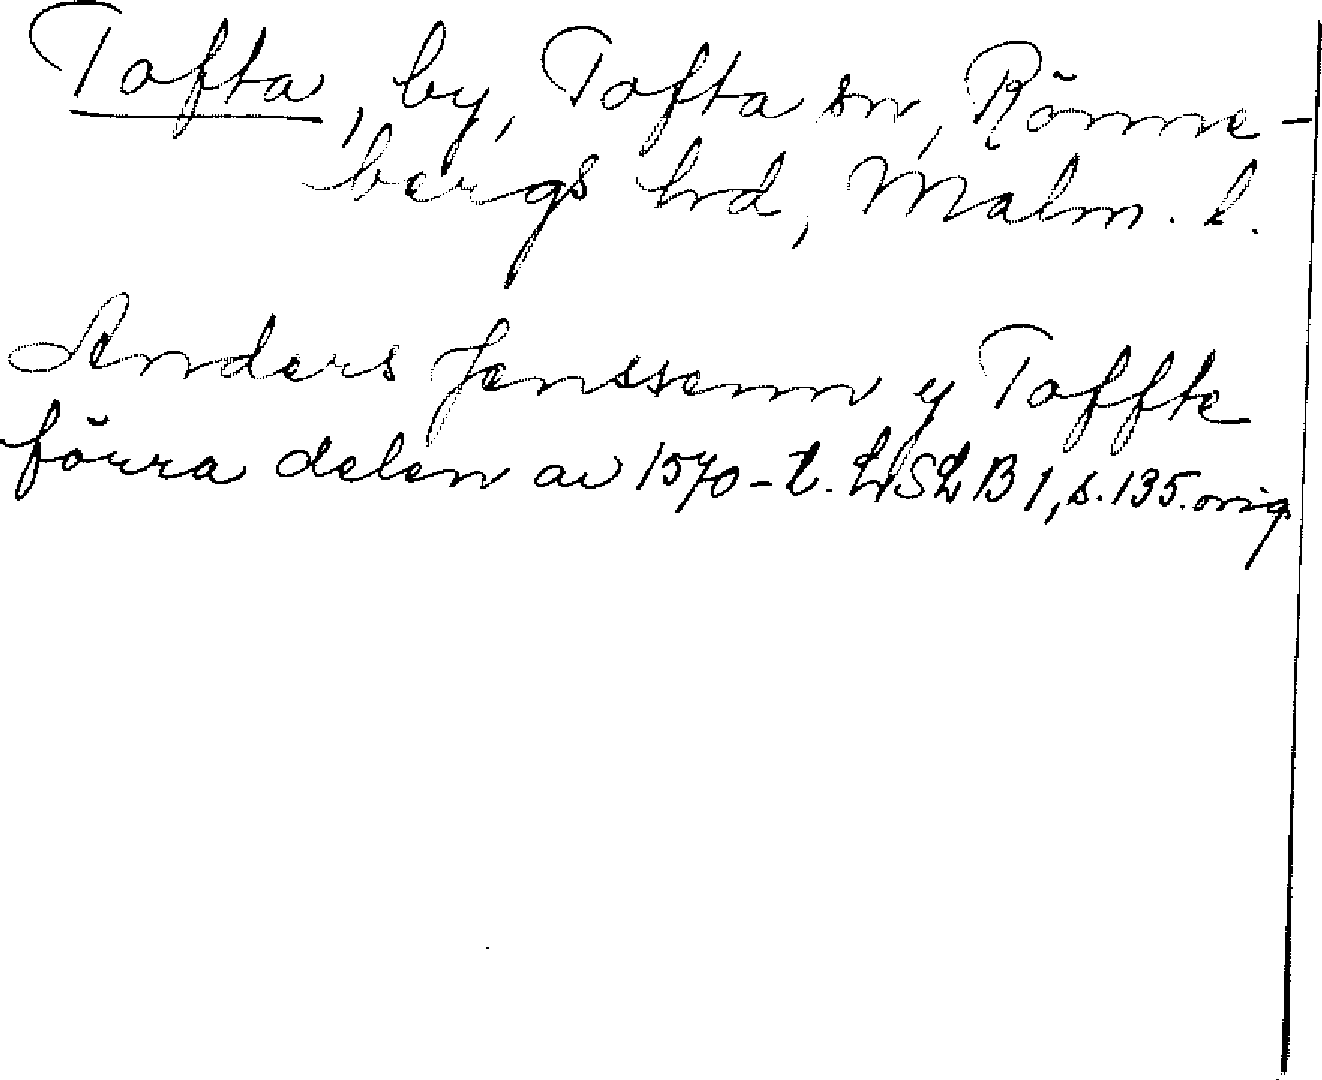 Tofta, by, Tofta sn, Rönne-
bergs hrd, Malm. l.
Anders Jenssenn y Toffte
förra delen av 1570-t. LSLB1, s. 135. orig.